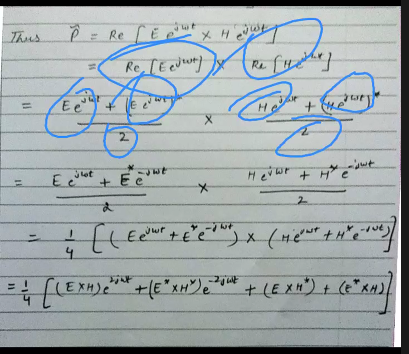 Thus P̄ = Re [ E e^jwt × H e^jwt ]
= Re [E e^jwt] × Re [H e^jwt]
= E e^jwt + (E e^jwt)* / 2 × H e^jwt + (H e^jwt)* / 2
= E e^jwt + E* e^-jwt / 2 × H e^jwt + H* e^-jwt / 2
= 1/4 [ ( E e^jwt + E* e^-jwt ) × ( H e^jwt + H* e^-jwt ) ]
= 1/4 [ (E × H) e^2jwt + (E* × H*) e^-2jwt + (E × H*) + (E* × H) ]